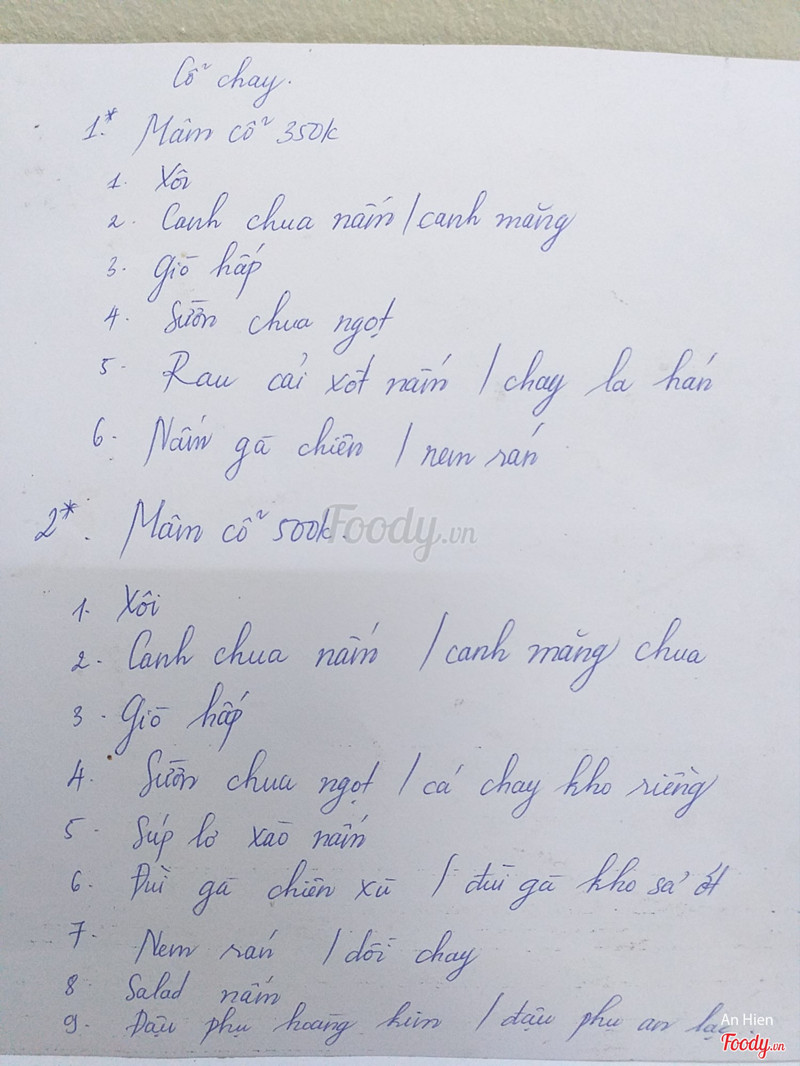 Cỗ chay.
1.* Mâm cỗ 350k
1. Xôi
2. Canh chua nấm / canh măng
3. Giò hấp
4. Sườn chua ngọt
5. Rau cải xốt nấm / chay la hán
6. Nấm gà chiên / nem rán
2*. Mâm cỗ 500k.
Foody.vn
1. Xôi
2. Canh chua nấm / canh măng chua
3. Giò hấp
4. Sườn chua ngọt / cá chay kho riềng
5. Súp lơ xào nấm
6. Đùi gà chiên xù / đùi gà kho sả ớt
7. Nem rán / dồi chay
8 Salad nấm
9. Đậu phụ hoàng kim / đậu phụ an lạc
An Hien
Foody.vn